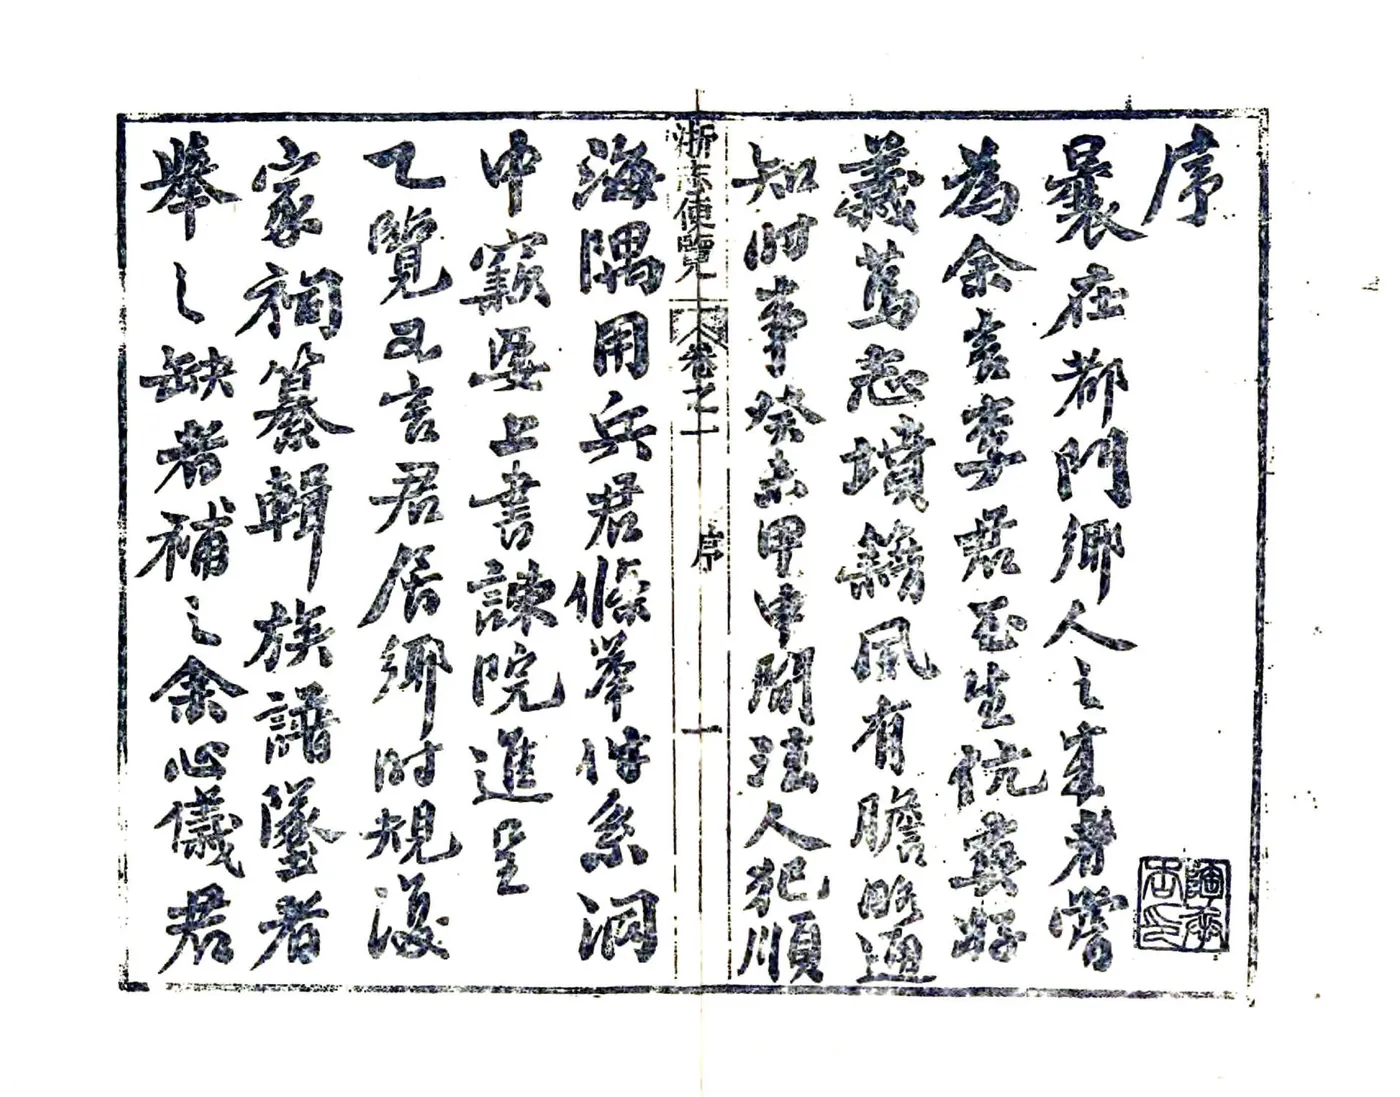 序
曩在都門鄉人之來者嘗
為余言李君玉生伉爽好
義篤志墳籍風有膽略通
知時事癸未甲申間法人犯順
浙志便覽 卷之一 序 一
海隅用兵君條舉件系洞
中窾要上書諫院進呈
乙覽又言君居鄉時規復
家祠纂輯族譜墜者
舉之缺者補之余心儀君